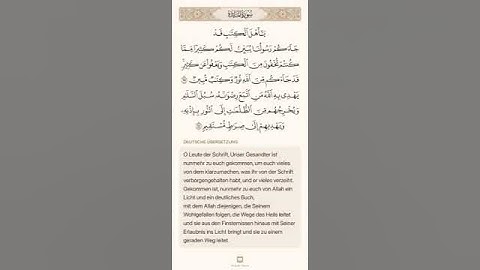 سورة المائدة
يَٰٓأَهۡلَ ٱلۡكِتَٰبِ قَدۡ
جَآءَكُمۡ رَسُولُنَا يُبَيِّنُ لَكُمۡ كَثِيرٗا مِّمَّا
كُنتُمۡ تُخۡفُونَ مِنَ ٱلۡكِتَٰبِ وَيَعۡفُواْ عَن كَثِيرٖۚ
قَدۡ جَآءَكُم مِّنَ ٱللَّهِ نُورٞ وَكِتَٰبٞ مُّبِينٞ ١٥
يَهۡدِي بِهِ ٱللَّهُ مَنِ ٱتَّبَعَ رِضۡوَٰنَهُۥ سُبُلَ ٱلسَّلَٰمِ
وَيُخۡرِجُهُم مِّنَ ٱلظُّلُمَٰتِ إِلَى ٱلنُّورِ بِإِذۡنِهِۦ
وَيَهۡدِيهِمۡ إِلَىٰ صِرَٰطٖ مُّسۡتَقِيمٖ ١٦
DEUTSCHE ÜBERSETZUNG
O Leute der Schrift, Unser Gesandter ist
nunmehr zu euch gekommen, um euch vieles
von dem klarzumachen, was ihr von der Schrift
verborgengehalten habt, und er vieles verzeiht.
Gekommen ist, nunmehr zu euch von Allah ein
Licht und ein deutliches Buch,
mit dem Allah diejenigen, die Seinem
Wohlgefallen folgen, die Wege des Heils leitet
und sie aus den Finsternissen hinaus mit Seiner
Erlaubnis ins Licht bringt und sie zu einem
geraden Weg leitet